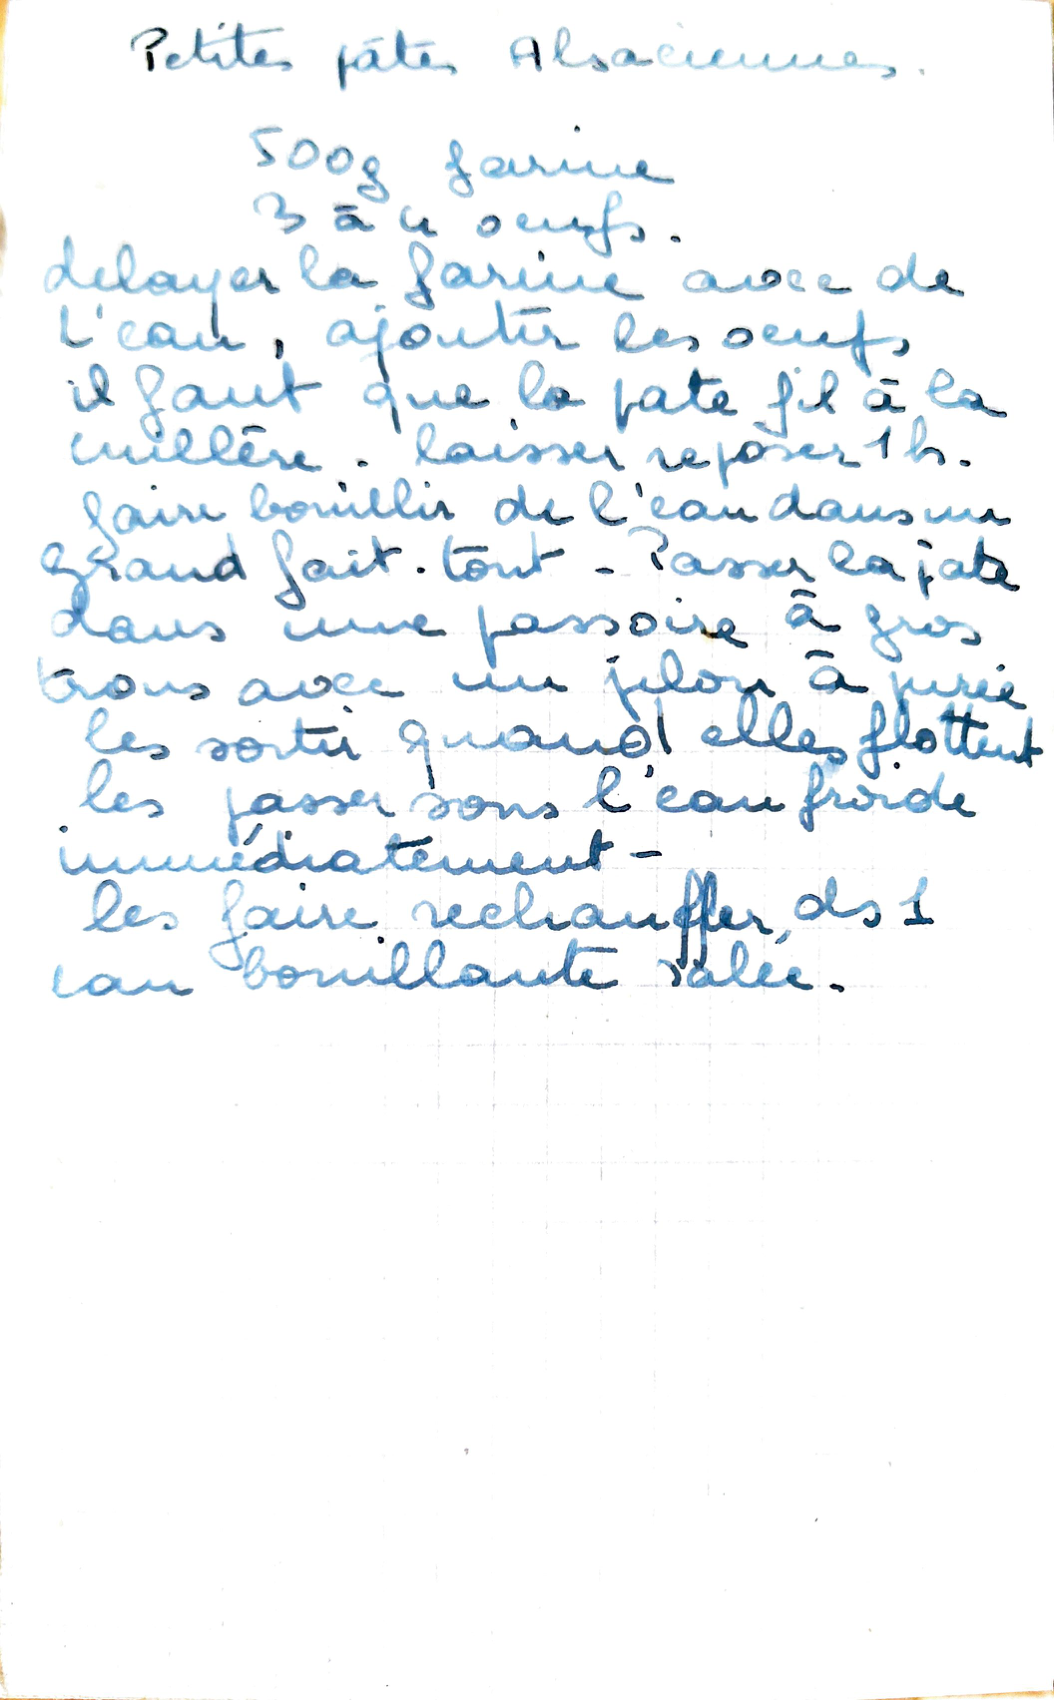 Petites pâtes Alsaciennes.
500g farine
3 à 4 oeufs.
delayer la farine avec de
l'eau, ajouter les oeufs
il faut que la pate fil à la
cuillère. laisser reposer 1h.
faire bouillir de l'eau dans un
grand fait.tout - Passer la pate
dans une passoire à gros
trous avec un pilon à purée
les sortir quand elles flottent
les passer sous l'eau froide
immédiatement -
les faire rechauffer ds 1
eau bouillante salée.